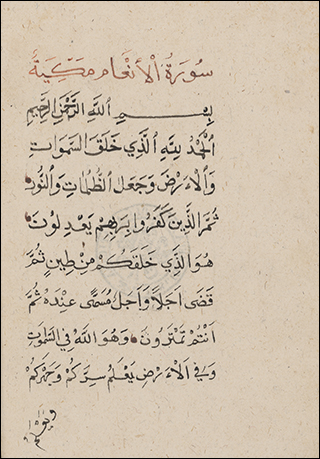 سُورَةُ الْأَنْعَامِ مَكِّيَّةٌ
بِسْمِ اللَّهِ الرَّحْمَنِ الرَّحِيمِ
الْحَمْدُ لِلَّهِ الَّذِي خَلَقَ السَّمَوَاتِ
وَالْأَرْضَ وَجَعَلَ الظُّلُمَاتِ وَالنُّورَ
ثُمَّ الَّذِينَ كَفَرُوا بِرَبِّهِمْ يَعْدِلُونَ
هُوَ الَّذِي خَلَقَكُمْ مِنْ طِينٍ ثُمَّ
قَضَى أَجَلًا وَأَجَلٌ مُسَمًّى عِنْدَهُ ثُمَّ
أَنْتُمْ تَمْتَرُونَ وَهُوَ اللَّهُ فِي السَّمَوَاتِ
وَفِي الْأَرْضِ يَعْلَمُ سِرَّكُمْ وَجَهْرَكُمْ
ويعلم